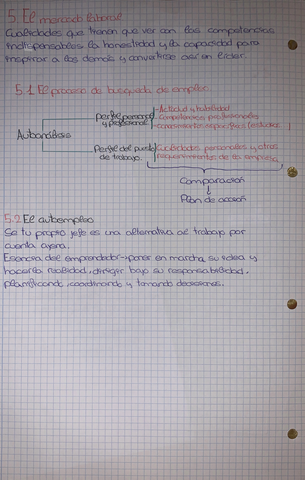 5. El mercado laboral
Cualidades que tienen que ver con las competencias
indispensables la honestidad y la capacidad para
inspirar a los demás y convertirse así en líder.
5.1 El proceso de búsqueda de empleo
Autoanálisis
Perfil personal y profesional
- Actitud y habilidad
- Competencias profesionales
- conocimientos específicos (estudios)
Perfil del puesto de trabajo
Cualidades personales y otros
requerimientos de la empresa
Comparación
Plan de acción
5.2 El autoempleo
Ser tu propio jefe es una alternativa al trabajo por
cuenta ajena.
Esencia del emprendedor - poner en marcha su idea y
hacerla realidad, dirigir bajo su responsabilidad,
planificando, coordinando y tomando decisiones.